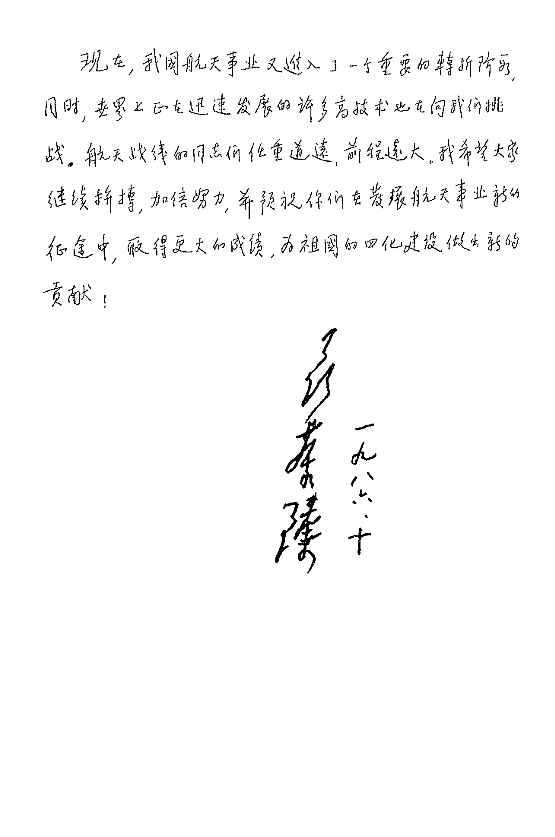 现在,我国航天事业又进入了一个重要的转折阶段,
同时,世界上正在迅速发展的许多高技术也在向我们挑
战。航天战线的同志们任重道遠,前程遠大。我希望大家
继续拚搏,加倍努力,并预祝你们在发展航天事业新的
征途中,取得更大的成绩,为祖國的四化建设做出新的
贡献!
一九八六.十